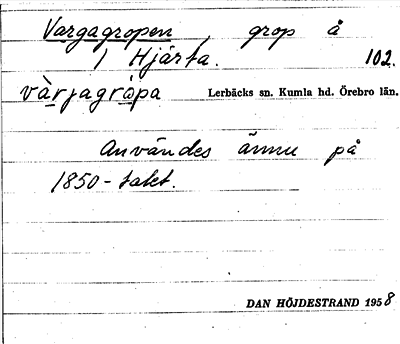 Vargagropen, grop å
1 Hjärta. 102.
vàrjagròpa Lerbäcks sn. Kumla hd. Örebro län.
Användes ännu på
1850-talet.
DAN HÖJDESTRAND 1958